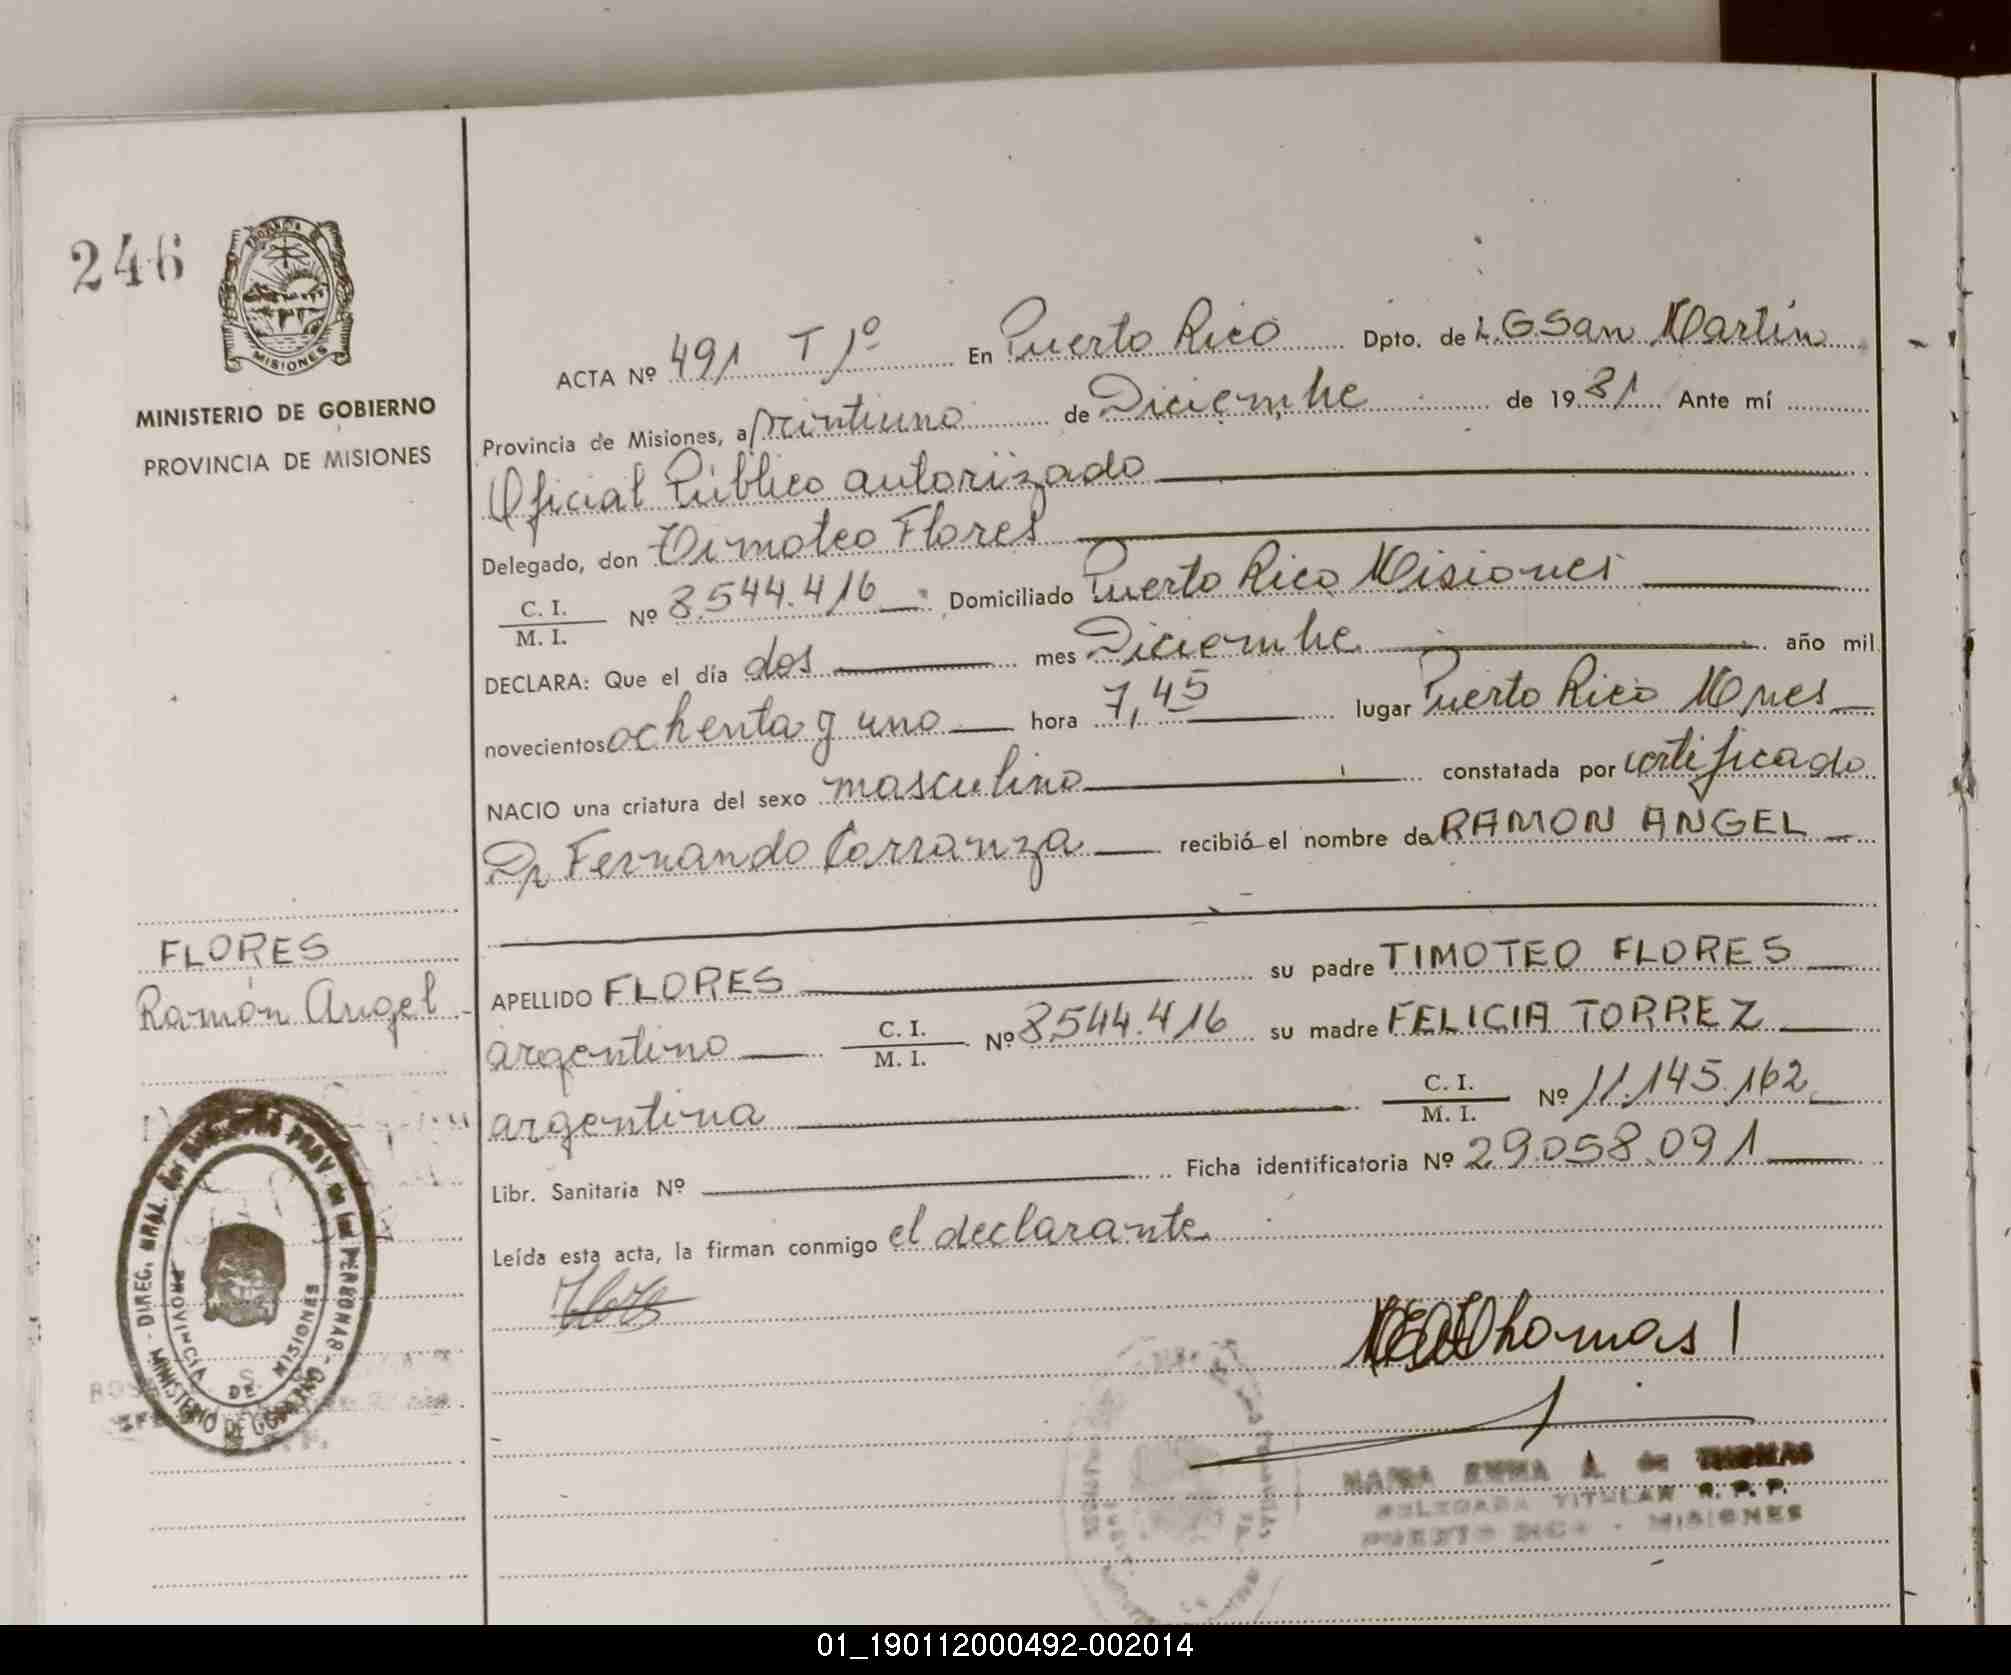 246
MISIONES
MINISTERIO DE GOBIERNO
PROVINCIA DE MISIONES
ACTA Nº 491 T 1º En Puerto Rico Dpto. de L.G.San Martín
Provincia de Misiones, a veintiuno de Diciembre de 1981 Ante mí
Oficial Público autorizado
Delegado, don Timoteo Flores
C. I. / M. I. Nº 8.544.416 Domiciliado Puerto Rico Misiones
DECLARA: Que el día dos mes Diciembre año mil
novecientos ochenta y uno hora 7,45 lugar Puerto Rico Mnes
NACIO una criatura del sexo masculino constatada por certificado
Dr Fernando Carranza recibió el nombre de RAMON ANGEL
FLORES
Ramón Angel
APELLIDO FLORES su padre TIMOTEO FLORES
argentino C. I. / M. I. Nº 8.544.416 su madre FELICIA TORREZ
argentina C. I. / M. I. Nº 11.145.162
Libr. Sanitaria Nº Ficha identificatoria Nº 29.058.091
Leída esta acta, la firman conmigo el declarante
Flores
Thomas
DIREC. GRAL. del REGISTRO PROV. de las PERSONAS - MINISTERIO DE GOBIERNO
PROVINCIA DE MISIONES
MARIA EMMA A. de THOMAS
DELEGADA TITULAR R. P. P.
PUERTO RICO - MISIONES
01_190112000492-002014